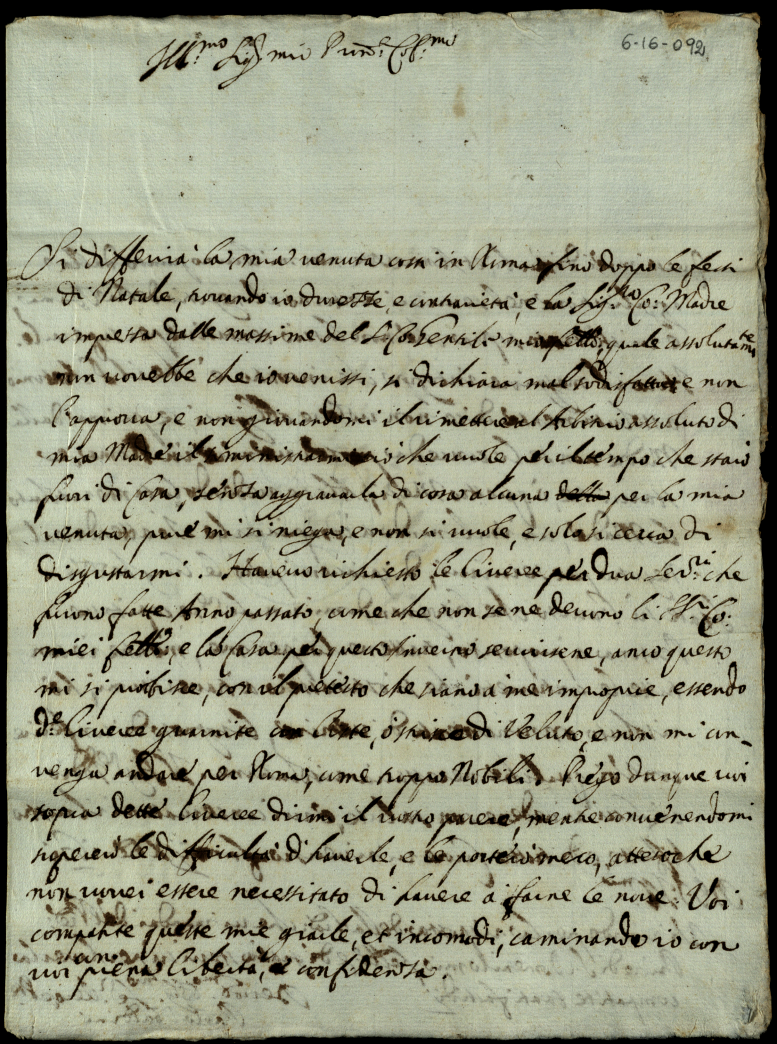 6-16-092
Ill.mo Sig.r mio P.ron Col.mo
Si differirà la mia venuta costì in Roma sino doppo le feste
di Natale, trovando io durezze, e contrarietà, e la Sig.ra Co: Madre
impressa dalle massime del S.r Co: Gentile mio fratello, quale assolutamte
non vorebbe che io venissi, si dichiara mal sodisfatta e non
l'approva, e non giovandomi il rimettere al Arbitrio assoluto di
mia Madre il che vuole per il tempo che starò
fuori di Casa, senza aggravarla di cosa alcuna detta per la mia
venuta, pure mi si niega, e non si vuole, e solo si cerca di
disgustarmi. Havevo richiesto le livree per dua Ser.ri che
furono fatte Anno passato, come che non se ne devono li SS.ri Co:
miei fratelli, e la Casa per questo Inverno servirsene, anco questo
mi si proibisce, con il pretesto che siano a me improprie, essendo
d.e livree guarnite con liste, ò striscie di Veluto, e non mi con-
venga andare per Roma, come troppo Nobili. Prego dunque voi
sopra dette livree dirmi il vostro parere, mentre convenendomi
supererò le difficultà d'haverle, e le porterò meco, attesoche
non vorei essere necessitato di havere à farne le nove. Voi
compatite queste mie ciarle, et incomodi, caminando io con
voi con piena libertà, e confidenza.